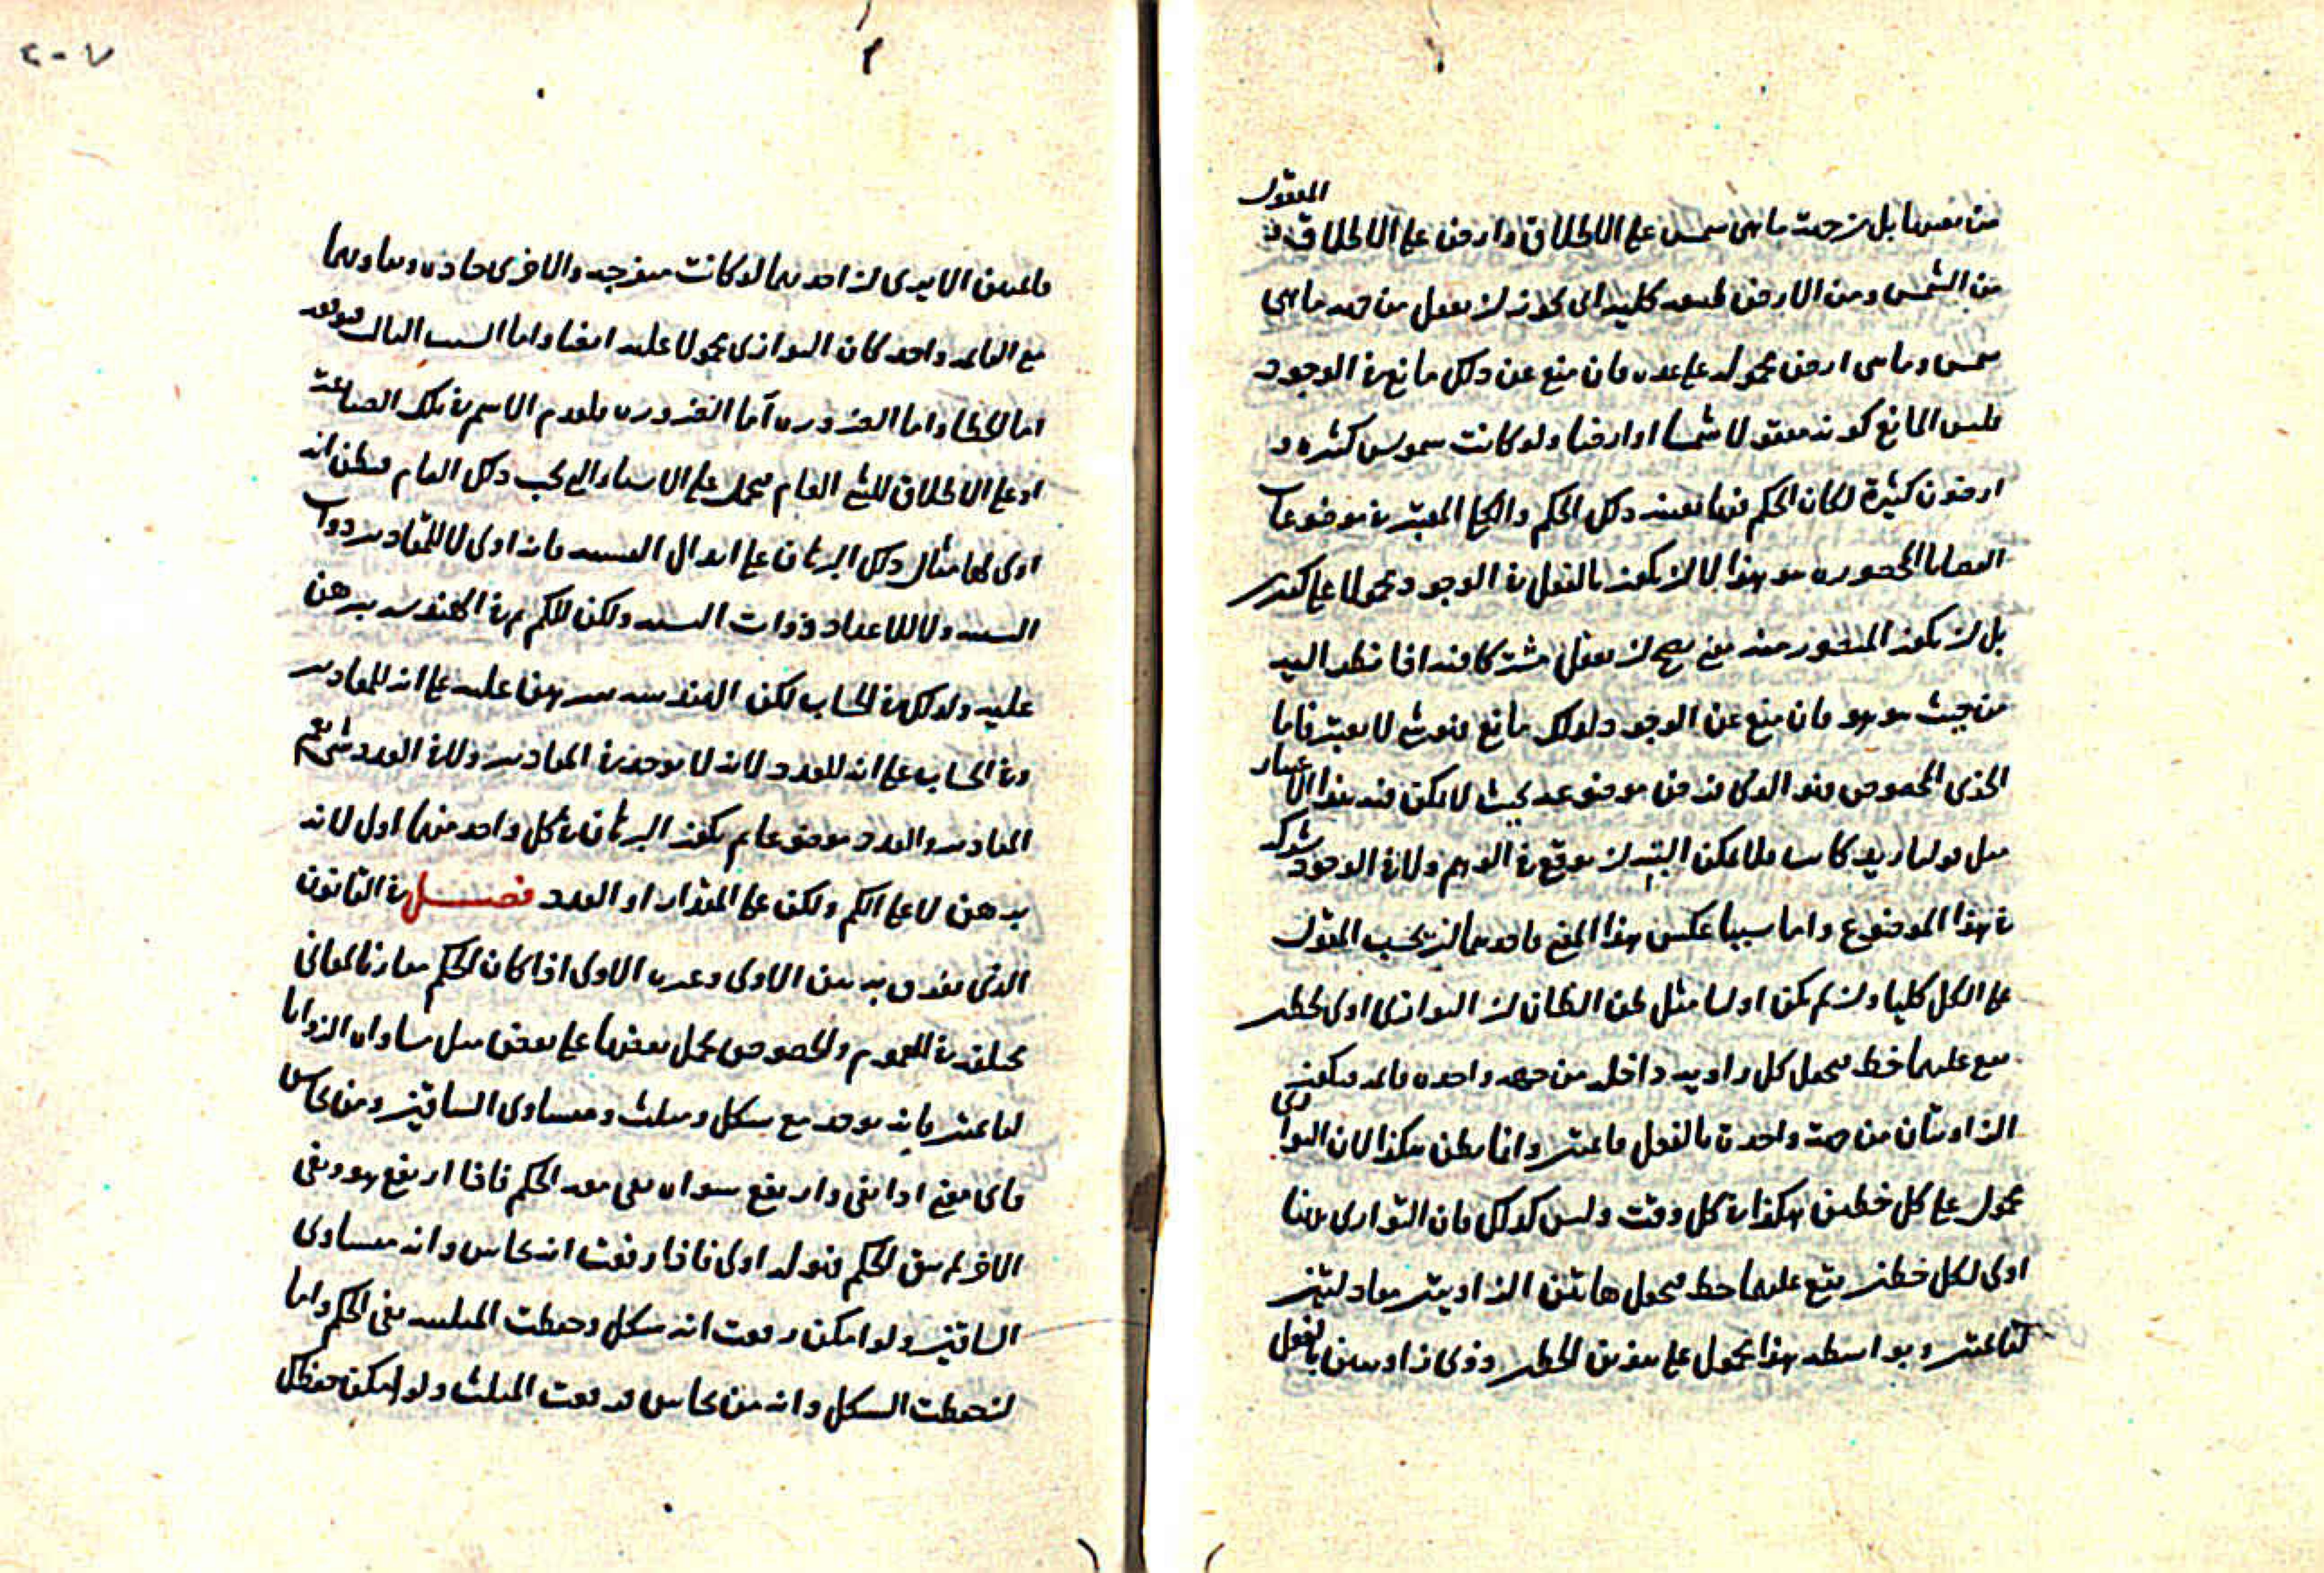 المعقول
من نفسها بل من حيث ما هى شمس على الاطلاق وارض على الاطلاق
من الشمس ومن الارض طبيعه كليه اى يجوز ان يعقل من حيث ما هى
شمس وما هى ارض محموله على عده فان منع عن ذلك مانع فى الوجود
فليس المانع كونه معقولا شمسا او ارضا ولو كانت شموس كثيره و
ارضون كثيرة لكان الحكم فيها بعينه ذلك الحكم والكلى المعتبر فى موضوعات
القضايا المحصوره هو هذا لا ان يكون بالفعل فى الوجود محمولا على كثير
بل ان يكون المتصور منه معنى يصح ان يعقل مشتركا فيه اذا نظر اليه
من حيث هو هو فان منع عن الوجود لذلك مانع فهو شى لا يعتبر فاما
الجزى المخصوص فهو الذى فرض موضوعه بحيث لا يمكن فيه هذا الاعتبار
مثل قولنا زيد كاتب فلا يمكن البته ان يوقع فى الوهم ولا فى الوجود شركه
فى هذا الموضوع واما سببا عكس هذا المعنى فاحدهما ان يحسب المقول
على الكل كليا وان لم يكن اوليا مثل ظن الظان ان التوازى اولى لخطين
يقع عليهما خط فيجعل كل زاويه داخله من جهه واحده قائمه فيكون
الزاويتان من جهة واحدة بالفعل قائمتين وانما يظن هكذا لان التوازى
محمول على كل خطين هكذا فى كل وقت وليس كذلك فان التوازى ههنا
اولى لكل خطين يقع عليهما خط فيجعل هاتين الزاويتين معادلتين
لقائمتين وبواسطه هذا يحمل على هذين الخطين وذوى زاويتين بالفعل
٢٠٧
قائمتين الا يرى ان احديهما لو كانت منفرجه والاخرى حاده ومعاد لهما
مع القائمه واحد كان التوازى محمولا عليه ايضا واما السبب الثالث فوقوعه
اما لخطا واما الضروره اما الضروره فلعدم الاسم فى تلك الصناعه
او على الاطلاق للشى العام فيحمل على الاشياء التى تحت ذلك العام فيظن انه
اولى لها مثال ذلك البرهان على ابدال النسبه فانه اولى لا للمقادير ذوات
النسبه ولا للاعداد ذوات النسبه ولكن للكم لم فى الهندسه يبرهن
عليه ولذلك فى الحساب لكن الهندسه يبرهن عليه على انه للمقادير
وفى الحساب على انه للعدد لانه لا يوجد فى المقادير ولا فى العدد شى يعم
المقادير والعدد موضوعا لم يكون البرهان فى كل واحد منهما اول لانه
يبرهن لا على الكم ولكن على المقدار او العدد فصل فى القانون
الذى يفرق به بين الاولى وغير الاولى اذا كان الحكم مقارنا لمعانى
مختلفه فى العموم والخصوص يحمل بعضها على بعض مثل مساواه الزوايا
لقائمتين فانه يوجد مع شكل ومثلث ومتساوى الساقين ومن نحاس
فاى معنى اذا بقى وارتفع سواه بقى معه الحكم فاذا ارتفع هو وبقى
الاخر لم يبق الحكم فهو له اولى فاذا رفعت انه نحاس وانه متساوى
الساقين ولو امكن رفعت انه شكل وحفظت المثلثيه بقى الحكم واما
ان حفظت الشكل وانه من نحاس قد رفعت المثلث ولو امكن حفظك